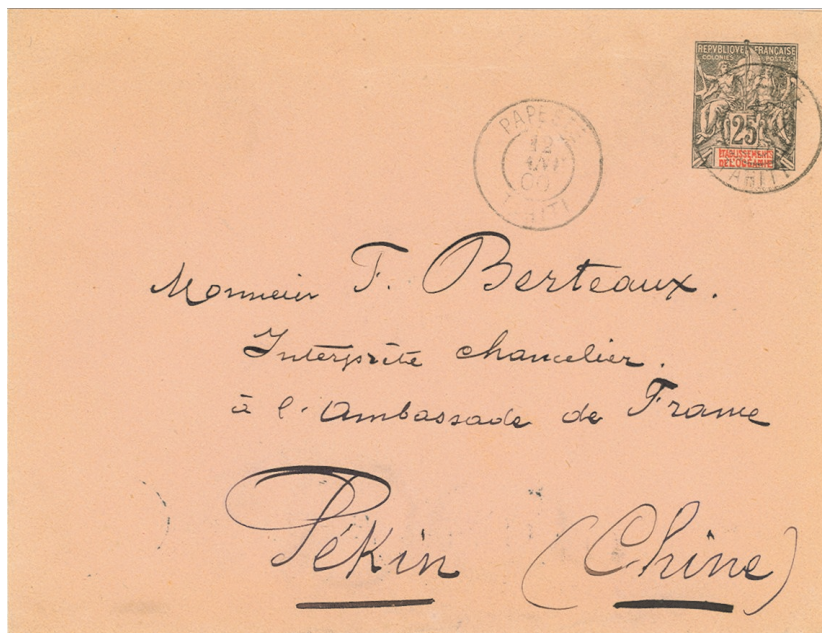 REPVBLIQVE FRANÇAISE
COLONIES POSTES
25
ETABLISSEMENTS
DE L'OCÉANIE
PAPEETE
12
00
TAHITI
Monsieur F. Berteaux.
Interprète chancelier.
à l'Ambassade de France
Pékin (Chine)